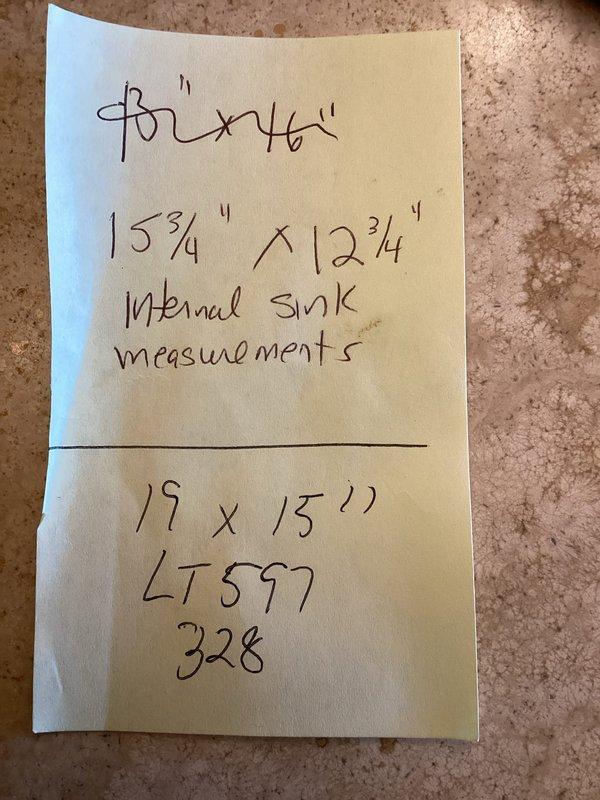 15 3/4" x 12 3/4"
Internal sink
measurements
19 x 15"
LT597
328